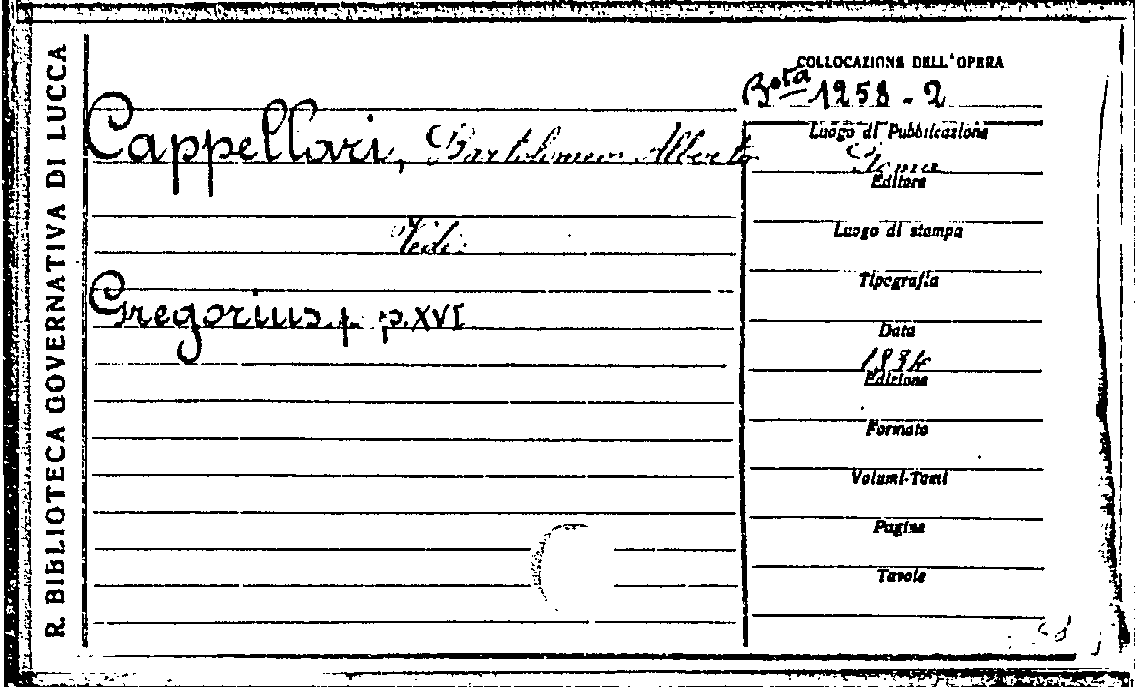 R. BIBLIOTECA GOVERNATIVA DI LUCCA
COLLOCAZIONE DELL'OPERA
Bta 1258-2
Cappellari, Bartolomeo Alberto
Vedi:
Gregorius p. p. XVI
Luogo di Pubblicazione
Roma
Editore
Luogo di stampa
Tipografia
Data
1834
Edizione
Formato
Volumi-Tomi
Pagine
Tavole